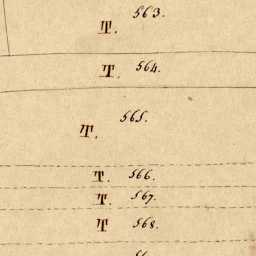 563.
T.
T. 564.
565.
T.
T. 566.
T. 567.
T 568.